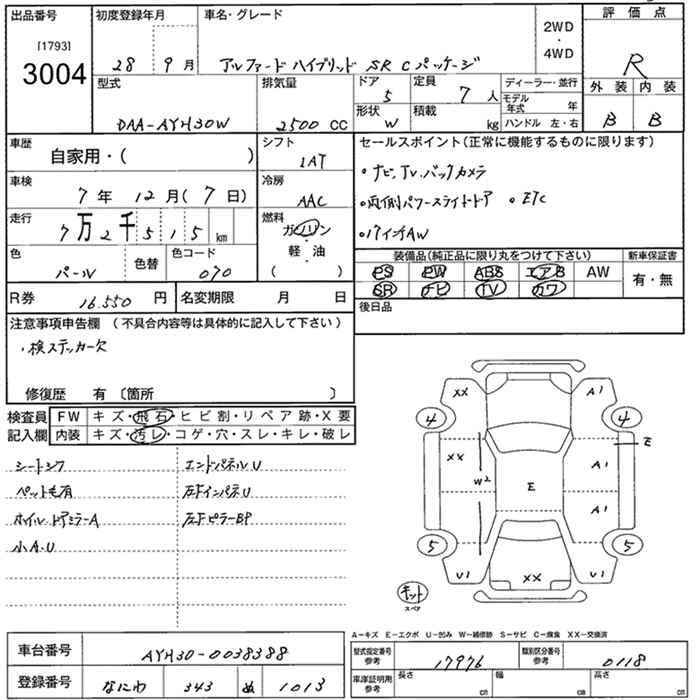 出品番号
[1793]
3004
初度登録年月
28 9月
車名・グレード
アルファード ハイブリッド SR Cパッケージ
2WD
・
4WD
評価点
R
外装 内装
B B
型式
DAA-AYH30W
排気量
2500 CC
ドア
5
定員
7人
形状
W
積載
kg
ディーラー・並行
モデル年式 年
ハンドル 左・右
車歴
自家用・( )
シフト
IAT
車検
7年 12月(7日)
冷房
AAC
走行
7万2千515 km
燃料
ガソリン
・
軽油
( )
色
パール
色替
色コード
070
R券 16.550 円
名変期限 月 日
セールスポイント(正常に機能するものに限ります)
・ナビ,TV,バックカメラ
・両側パワースライドドア ・ETC
・17インチAW
装備品(純正品に限り丸をつけて下さい)
新車保証書
PS PW ABS エアB AW
SR ナビ TV カワ
有・無
後日品
注意事項申告欄(不具合内容等は具体的に記入して下さい)
・検ステッカー欠
修復歴 有〔箇所 〕
検査員
記入欄
FW キズ・飛石・ヒビ割・リペア跡・X要
内装 キズ・汚レ・コゲ・穴・スレ・キレ・破レ
シートシワ
エンドパネルU
ペット毛有
左FインパネU
ホイルドアミラーA
左FピラーBP
小A.U
XX
A1
4
4
E
XX
A1
W2
E
A1
5
5
U1
XX
U1
キット
スペア
A-キズ E-エクボ U-凹み W-補修跡 S-サビ C-腐食 XX-交換済
車台番号 AYH30-0038388
登録番号 なにわ 343 ぬ 1013
型式指定番号
参考
17976
類別区分番号
参考
0118
車庫証明用
参考
長さ cm
幅 cm
高さ cm